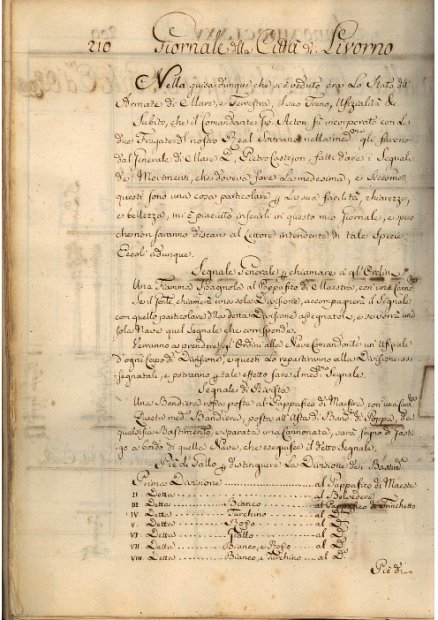 210 Giornale della Città di Livorno
Nella guisa dunque che si è veduto era Lo Stato dell'
Armate di Mare, e Terrestre, il suo Treno, Ufizialità &
Subito, che il Comandante Acton fu incorporato con Le
due Fregate del nostro Real Sovrano nella med. gli furono
dal Generale di Mare D. Pietro Castejon, fatti dare i Segnali
de' Movimenti, che doveva fare La medesima, e siccome
questi sono una cosa particolare p. La sua facilità, chiarezza,
e bellezza, mi è piaciuto inserirli in questo mio Giornale, e però
che non saranno discari al Lettore intendente di tale Specie.
Eccoli adunque.
Segnale Generale p. chiamare a gl'Ordini
Una Fiamma Spagnola al Pappafico di Maestra, con una
Se il Gen. chiamerà una sola Divisione, accompagnerà il Segnale
con quello particolare della detta Divisione assegnatoli, e se vorrà una
sola Nave quel Segnale che corrisponde.
Verranno a prendere gl'Ordini alla Nave Comandante un Ufiziale
d'ogni Capo di Divisione, e questi Lo repartiranno alla Divisione as-
segnatali, e potranno p. tale effetto fare il med. Segnale.
Segnale di Rivista
Una Bandiera rossa posta al Pappafico di Maestra, con una
Questa med. Bandiera, posta all'Asta di Band. di Poppa, da
qualsisia Bastimento, e sparata una Cannonata, sarà segno di gasti-
go a bordo di quella Nave, che eseguisce il detto Segnale.
Piè di Gallo p. distinguere La Divisione de' Bastim.
Prima Divisione al Pappafico di Maestra
II Detta al Belvedere
III Detta Bianco al Pappafico di Trinchetto
IV Detta Turchino al
V Detta Rosso al
VI Detta Giallo al
VII Detta Bianco, e Rosso al
VIII Detta Bianco, e Turchino al
Piè di